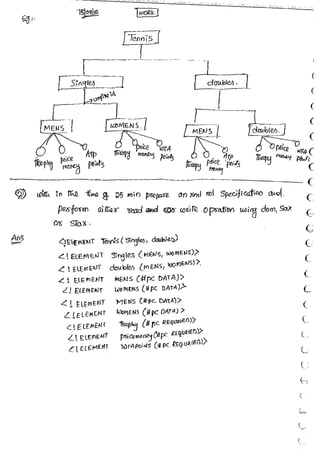 Eg:-
WORK
Tennis
Singles
doubles.
MENS
WOMENS
MENS
doubles.
Trophy price money ATP points
Trophy price money WTA points
Trophy price money ATP points
Trophy price money WTA points
with in the time of 25 min prepare an xml nol Specification and
perform either read and or write operation using dom, Sax
or Stax.
Ans
<!ELEMENT Tennis (Singles, doubles)>
<! ELEMENT Singles (MENS, WOMENS)>
<! ELEMENT doubles (MENS, WOMENS)>
<! ELEMENT MENS (#pc DATA)>
<! ELEMENT WOMENS (#pc DATA)>
<! ELEMENT MENS (#pc DATA)>
<! ELEMENT WOMENS (#pc DATA)>
<! ELEMENT Trophy (#pc REQUIRED)>
<! ELEMENT pricemoney (#pc REQUIRED)>
<! ELEMENT points (#pc REQUIRED)>